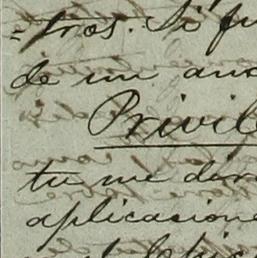 =tros. Si fu
de un anu
Privile
tu me dir
aplicacione